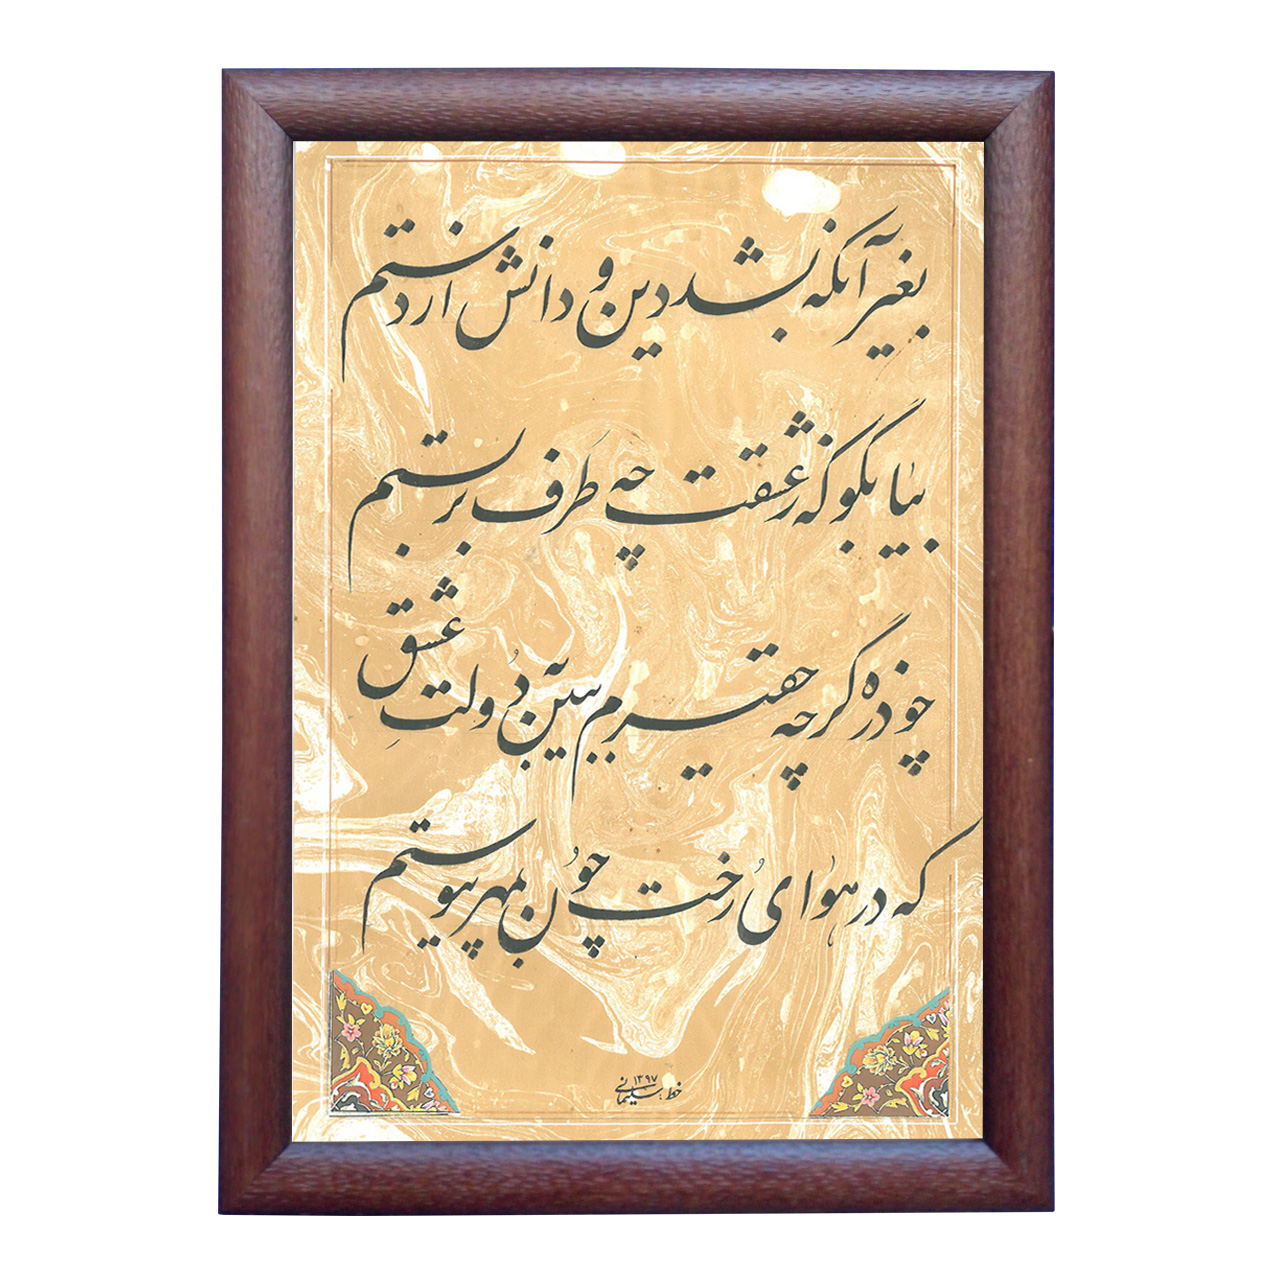 بغیر آنکه بشد دین و دانش از دستم
بیا بگو که ز عشقت چه طرف بربستم
چو ذره گرچه حقیرم ببین به دولت عشق
که در هوای رخت چون بمهر پیوستم
خط: سلیمانی ۱۳۹۷